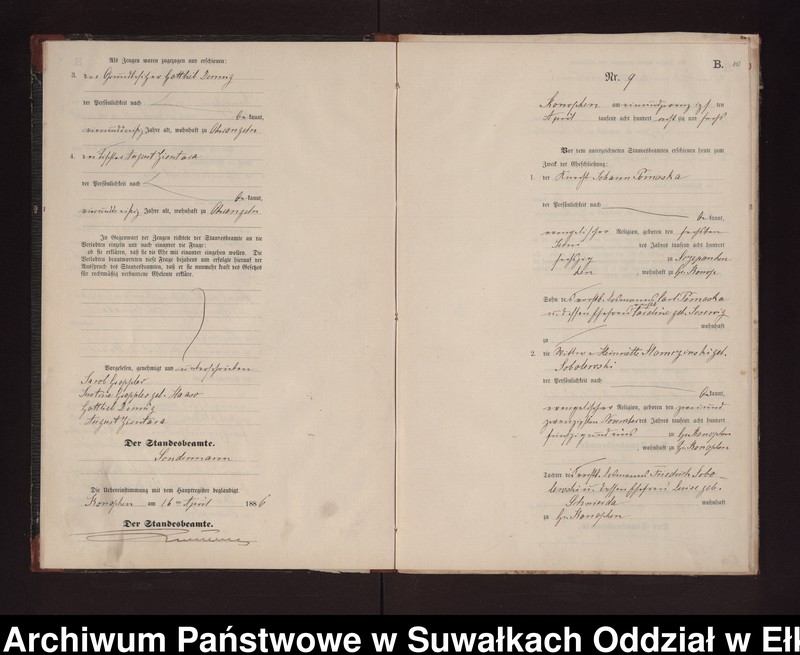 Als Zeugen waren zugezogen und erschienen:
3. der Grundbesitzer Gottlieb
der Persönlichkeit nach
be kannt,
Jahre alt, wohnhaft zu
4. der August Zientara
der Persönlichkeit nach
be kannt,
Jahre alt, wohnhaft zu
In Gegenwart der Zeugen richtete der Standesbeamte an die
Verlobten einzeln und nach einander die Frage:
ob sie erklären, daß sie die Ehe mit einander eingehen wollen. Die
Verlobten beantworteten diese Frage bejahend und erfolgte hierauf der
Ausspruch des Standesbeamten, daß er sie nunmehr kraft des Gesetzes
für rechtmäßig verbundene Eheleute erkläre.
Vorgelesen, genehmigt und unterschrieben
Jacob
geb.
Gottlieb
August Zientara
Der Standesbeamte.
Sondermann
Die Uebereinstimmung mit dem Hauptregister beglaubigt
Konopken am 16ten April 1886
Der Standesbeamte.
B.
Nr. 9
Konopken am einundzwanzigsten
April tausend acht hundert achtzig und sechs
Vor dem unterzeichneten Standesbeamten erschienen heute zum
Zweck der Eheschließung:
1. der Knecht Johann
der Persönlichkeit nach
be kannt,
evangelischer Religion, geboren den sechsten
des Jahres tausend acht hundert
sechszig zu
, wohnhaft zu Gr. Konop
Sohn des verstb. Losmanns Carl
und dessen Ehefrau geb.
wohnhaft
zu
2. die Wittwe Heinriette geb.
Sobolewski
der Persönlichkeit nach
be kannt,
evangelischer Religion, geboren den zwei und
zwanzigsten November des Jahres tausend acht hundert
fünfzig und eins zu Gr. Konopken
, wohnhaft zu Gr. Konopken
Tochter des verstb. Losmanns Friedrich Sobo-
lewski u. dessen Ehefrau Louise geb.
wohnhaft
zu Gr. Konopken
Archiwum Państwowe w Suwałkach Oddział w Ełk